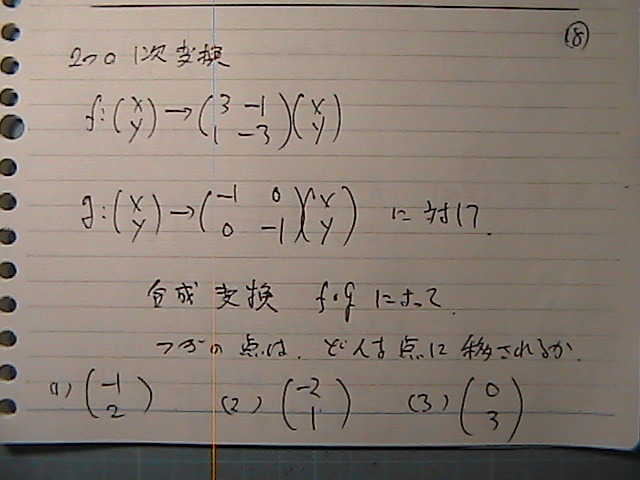 ⑱
2つの1次変換
f:(x y)→(3 -1 1 -3)(x y)
g:(x y)→(-1 0 0 -1)(x y) に対して、
合成変換 f・g によって、
つぎの点は、どんな点に移されるか.
(1) (-1 2) (2) (-2 1) (3) (0 3)